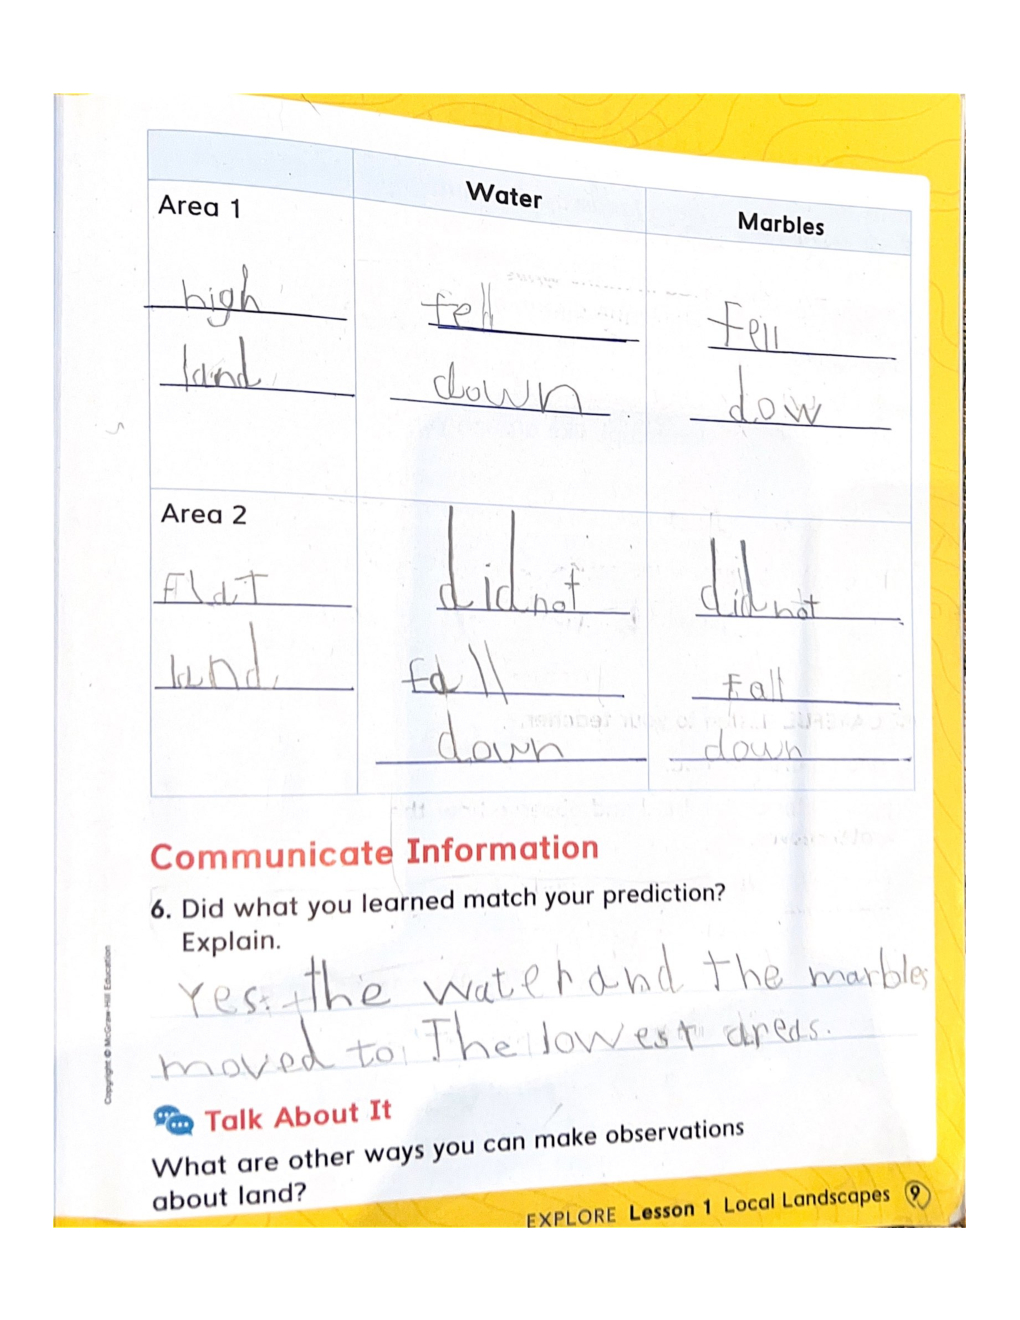 Water
Marbles
Area 1
high
fell
Fell
land
down
dow
Area 2
did not
did not
Flat
land
fall
Fall
down
down
Communicate Information
6. Did what you learned match your prediction?
Explain.
Yes. the water and the marbles
moved to The lowest areas.
Talk About It
What are other ways you can make observations
about land?
EXPLORE Lesson 1 Local Landscapes 9
Copyright © McGraw-Hill Education